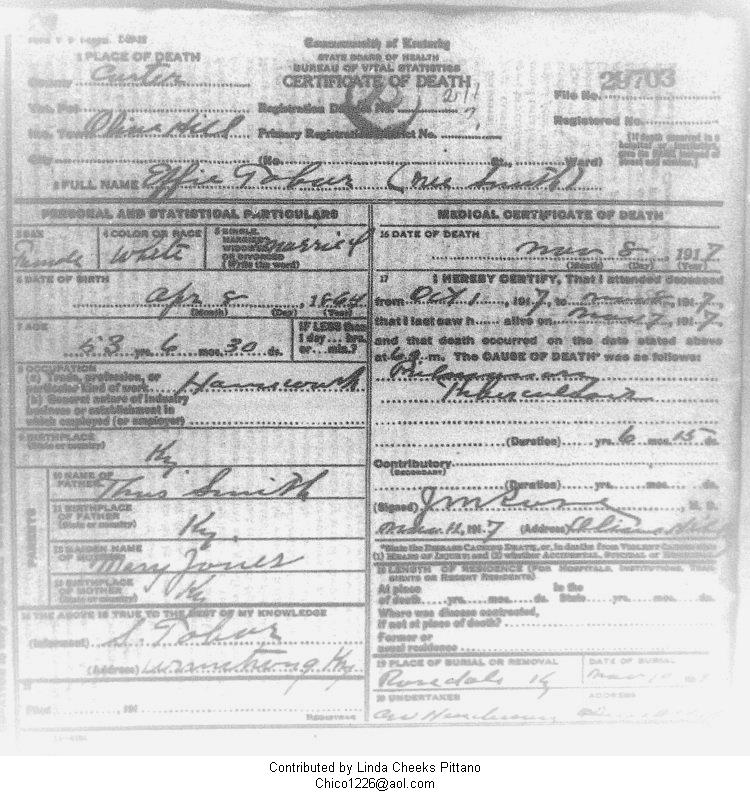 Commonwealth of Kentucky
STATE BOARD OF HEALTH
BUREAU OF VITAL STATISTICS
CERTIFICATE OF DEATH
1 PLACE OF DEATH
County Carter
Vot. Pct.
Inc. Town Olive Hill
City (No. St., Ward)
Registration District No. 211
Primary Registration District No.
File No. 29703
Registered No.
(If death occurred in a
hospital or institution,
give its NAME instead of
street and number.)
2 FULL NAME Effie Tobor (nee Smith)
PERSONAL AND STATISTICAL PARTICULARS
3 SEX
Female
4 COLOR OR RACE
White
5 SINGLE,
MARRIED,
WIDOWED
OR DIVORCED
(Write the word)
Married
6 DATE OF BIRTH
Apr 8, 1864
(Month) (Day) (Year)
7 AGE
53 yrs. 6 mos. 30 ds.
IF LESS than
1 day... hrs.
or... min.?
8 OCCUPATION
(a) Trade, profession, or
particular kind of work Housework
(b) General nature of industry
business or establishment in
which employed (or employer)
9 BIRTHPLACE
(State or country)
Ky.
PARENTS
10 NAME OF
FATHER
Thos Smith
11 BIRTHPLACE
OF FATHER
(State or country)
Ky.
12 MAIDEN NAME
OF MOTHER
Mary Jones
13 BIRTHPLACE
OF MOTHER
(State or country)
Ky
14 THE ABOVE IS TRUE TO THE BEST OF MY KNOWLEDGE
(Informant) S. Tobor
(Address) Armstrong Ky
15
Filed, 191
REGISTRAR
MEDICAL CERTIFICATE OF DEATH
16 DATE OF DEATH
Nov 8, 1917
(Month) (Day) (Year)
17 I HEREBY CERTIFY, That I attended deceased
from Oct 1, 1917, to, 1917,
that I last saw h alive on Nov 7, 1917,
and that death occurred on the date stated above
at 6 a m. The CAUSE OF DEATH* was as follows:
Pulmonary
Tuberculosis
(Duration) yrs. 6 mos. 15 ds.
Contributory
(SECONDARY)
(Duration) yrs. mos. ds.
(Signed), M. D.
Nov 12, 1917 (Address) Olive Hill
*State the DISEASE CAUSING DEATH, or, in deaths from VIOLENT CAUSES, state
(1) MEANS OF INJURY; and (2) whether ACCIDENTAL, SUICIDAL or HOMICIDAL
18 LENGTH OF RESIDENCE (FOR HOSPITALS, INSTITUTIONS, TRANSIENTS OR RECENT RESIDENTS)
At place
of death yrs. mos. ds.
In the
State yrs. mos. ds.
Where was disease contracted,
if not at place of death?
Former or
usual residence
19 PLACE OF BURIAL OR REMOVAL
Rosedale Ky
DATE OF BURIAL
Nov 10, 191
20 UNDERTAKER
ADDRESS
Contributed by Linda Cheeks Pittano
Chico1226@aol.com